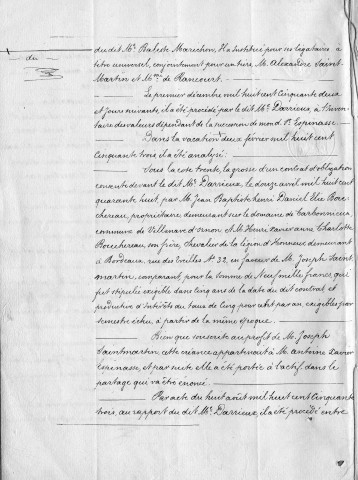 du
du dit Me Baleste Marichon, il a institué pour ses légataires à
titre universel, conjointement pour un tiers, M. Alexandre Saint-
Martin et Mme de Rancourt.
Le premier décembre mil huit cent cinquante deux
et jours suivants, il a été procédé par le dit Me Darrieux, à l'inven-
taire des valeurs dépendant de la succession de mond. Sr Espinasse.
Dans la vacation deux février mil huit cent
cinquante trois il a été analysé.
Sous la cote trente, la grosse d'un contrat d'obligation
consenti devant le dit Me Darrieux, le douze avril mil huit cent
quarante huit, par M. Jean Baptiste henri Daniel Elie Bou-
chereau, propriétaire demeurant sur le domaine de Carbonnieux,
commune de Villenave d'ornon et M. Henri Xavier anne Charlotte
Bouchereau, son frère, Chevalier de la légion d'honneur demeurant
à Bordeaux, rue des Treilles No 32, en faveur de M. Joseph Saint
martin, comparant, pour la somme de Neuf mille francs, qui
fut stipulée exigible dans cinq ans de la date du dit contrat et
productive d'intérêts au taux de cinq pour cent par an, exigibles par
semestre échu, à partir de la même époque.
Bien que souscrite au profit de M. Joseph
Saintmartin, cette créance appartenait à M. antoine
Espinasse, et par suite elle a été portée à l'actif dans le
partage qui va être énoncé.
Par acte du huit août mil huit cent cinquante
trois, au rapport du dit Me Darrieux, il a été procédé entre